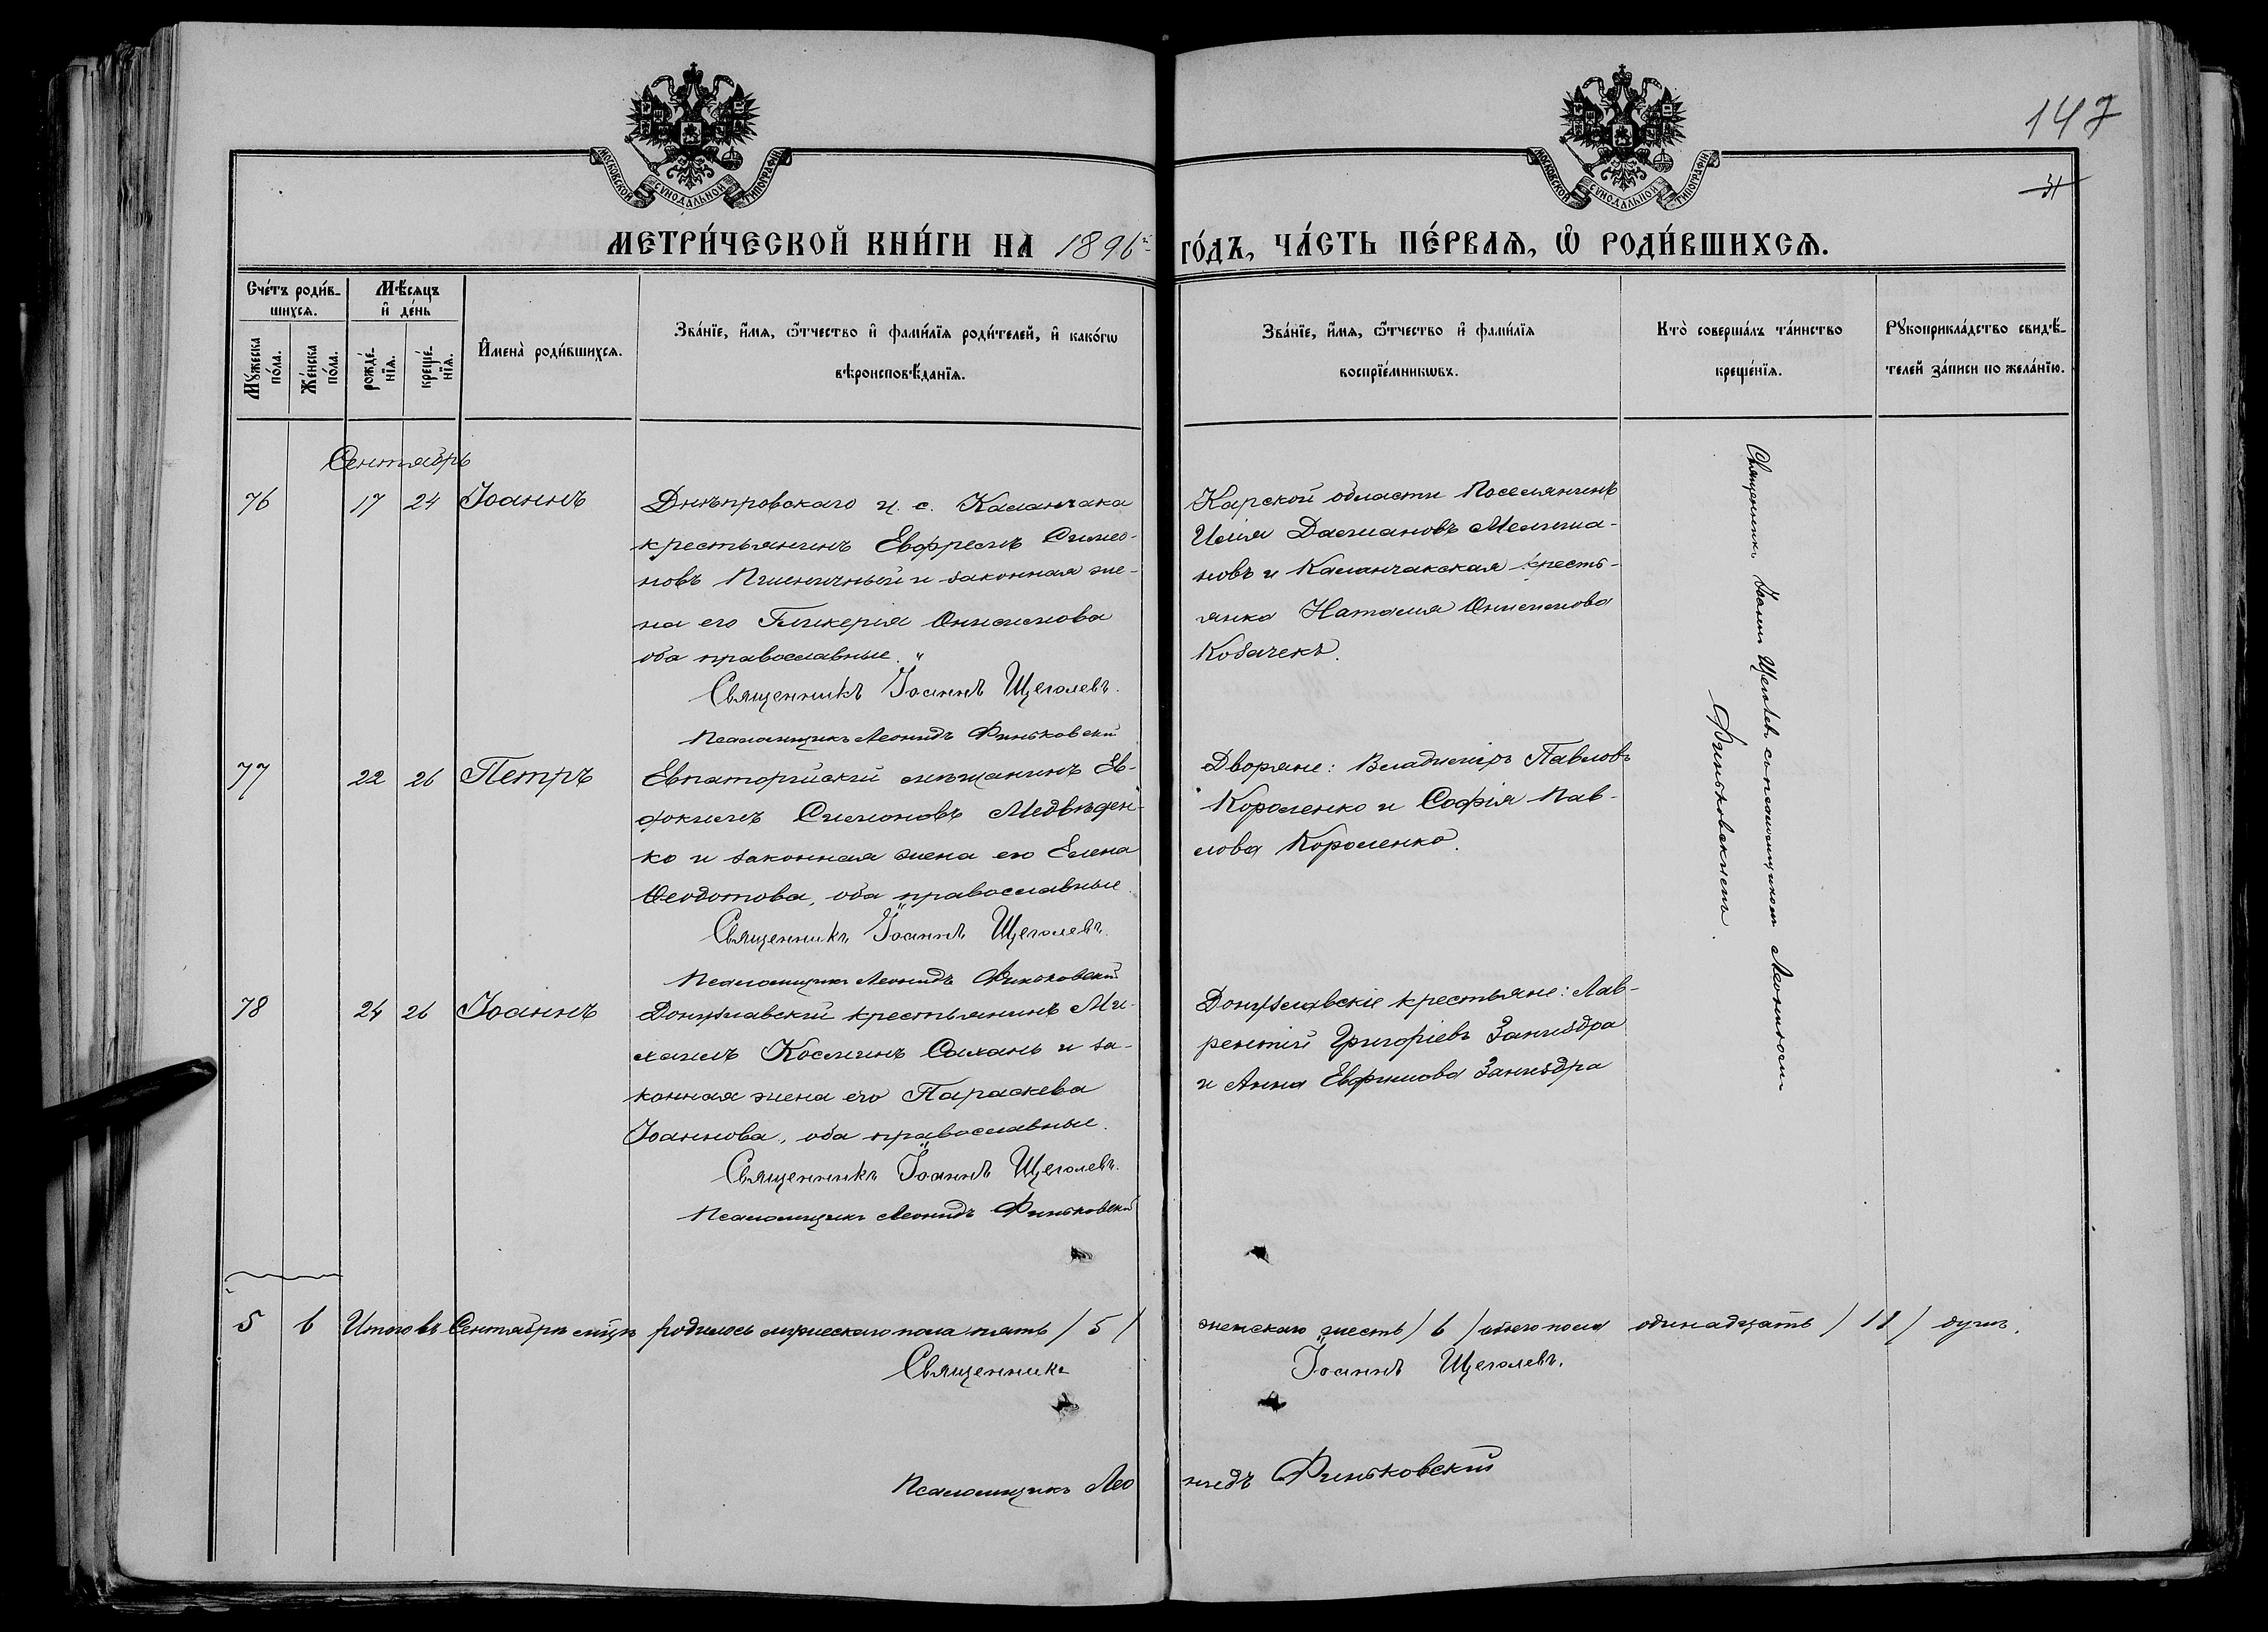 147
31
МОСКОВСКОЙ СѴНОДАЛЬНОЙ ТИПОГРАФІИ
МОСКОВСКОЙ СѴНОДАЛЬНОЙ ТИПОГРАФІИ
МЕТРИ́ЧЕСКОЙ КНИ́ГИ НА 1896 ГО́ДЪ, ЧА́СТЬ ПЕ́РВАѦ, Ѡ РОДИ́ВШИХСѦ.
Сче́тъ роди́в-
шихсѧ.
Мꙋ́жеска по́ла.
Же́нска по́ла.
Мѣ́сѧцъ
и҆ де́нь
рожде́-
нїѧ.
креще́-
нїѧ.
И҆мена̀ роди́вшихсѧ.
Зва́нїе, и҆́мѧ, ѻ҆́тчество и҆ фами́лїѧ роди́телей, и҆ како́гѡ
вѣроисповѣ́данїѧ.
Зва́нїе, и҆́мѧ, ѻ҆́тчество и҆ фами́лїѧ
воспрїе́мникѡвъ.
Кто̀ соверша́лъ та́инство
креще́нїѧ.
Рꙋкоприкла́дство свидѣ́-
телей за́писи по жела́нїю.
Сентябрь
76 17 24 Іоаннъ
Днѣпровскаго у. с. Каланчака
крестьянинъ Евфремъ Симео-
новъ Пшеничный и законная же-
на его Гликерія Онисимова
оба православные.
Священникъ Іоаннъ Щеголевъ.
Псаломщикъ Леонидъ Финьковскій
Карской области поселянинъ
Илія Даміановъ
новъ и Каланчакская кресть-
янка Наталія Онисимова
Козачекъ.
77 22 26 Петръ
Евпаторійскій мѣщанинъ Ев-
докимъ Симоновъ Медвѣден-
ко и законная жена его Елена
Ѳеодотова, оба православные.
Священникъ Іоаннъ Щеголевъ.
Псаломщикъ Леонидъ Финьковскій
Дворяне: Владиміръ Павловъ
Короленко и Софія Пав-
лова Короленко.
78 24 26 Іоаннъ
Донузлавскій крестьянинъ Ми-
хаилъ Косминъ Сахань и за-
конная жена его Параскева
Іоаннова, оба православные.
Священникъ Іоаннъ Щеголевъ.
Псаломщикъ Леонидъ Финьковскій
Донузлавскіе крестьяне: Лав-
рентій Григоріевъ Заниздра
и Анна Евфимова Заниздра
Священникъ Іоаннъ Щеголевъ съ псаломщикомъ Леонидомъ
Финьковскимъ.
5 6 Итого въ Сентябрѣ мцѣ родилось мужескаго пола пять / 5 / женскаго шесть / 6 / обоего пола одинадцать / 11 / душъ.
Священникъ Іоаннъ Щеголевъ.
Псаломщикъ Леонидъ Финьковскій